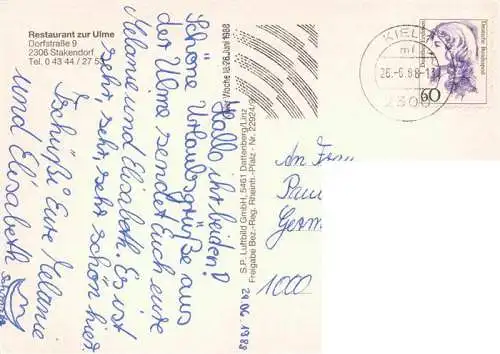 Restaurant zur Ulme
Dorfstraße 9
2306 Stakendorf
Tel. 0 43 44 / 27 5
Hallo ihr beiden!
Schöne Urlaubsgrüße aus
der Ulme sendet Euch eure
Melanie und Elisabeth. Es ist
sehr, sehr, sehr schön hier.
Tschüßi Eure Melanie
und Elisabeth
24.06.1988
S.P. Luftbild GmbH, 5461 Dattenberg/Linz
Freigabe Bez.-Reg. Rheinh.-Pfalz - Nr.
Woche 18.-26. Juni 1988
KIEL
mf
26.-6.88-1
2300
Deutsche Bundespost
60
An Fam
Paul
Germ
1000